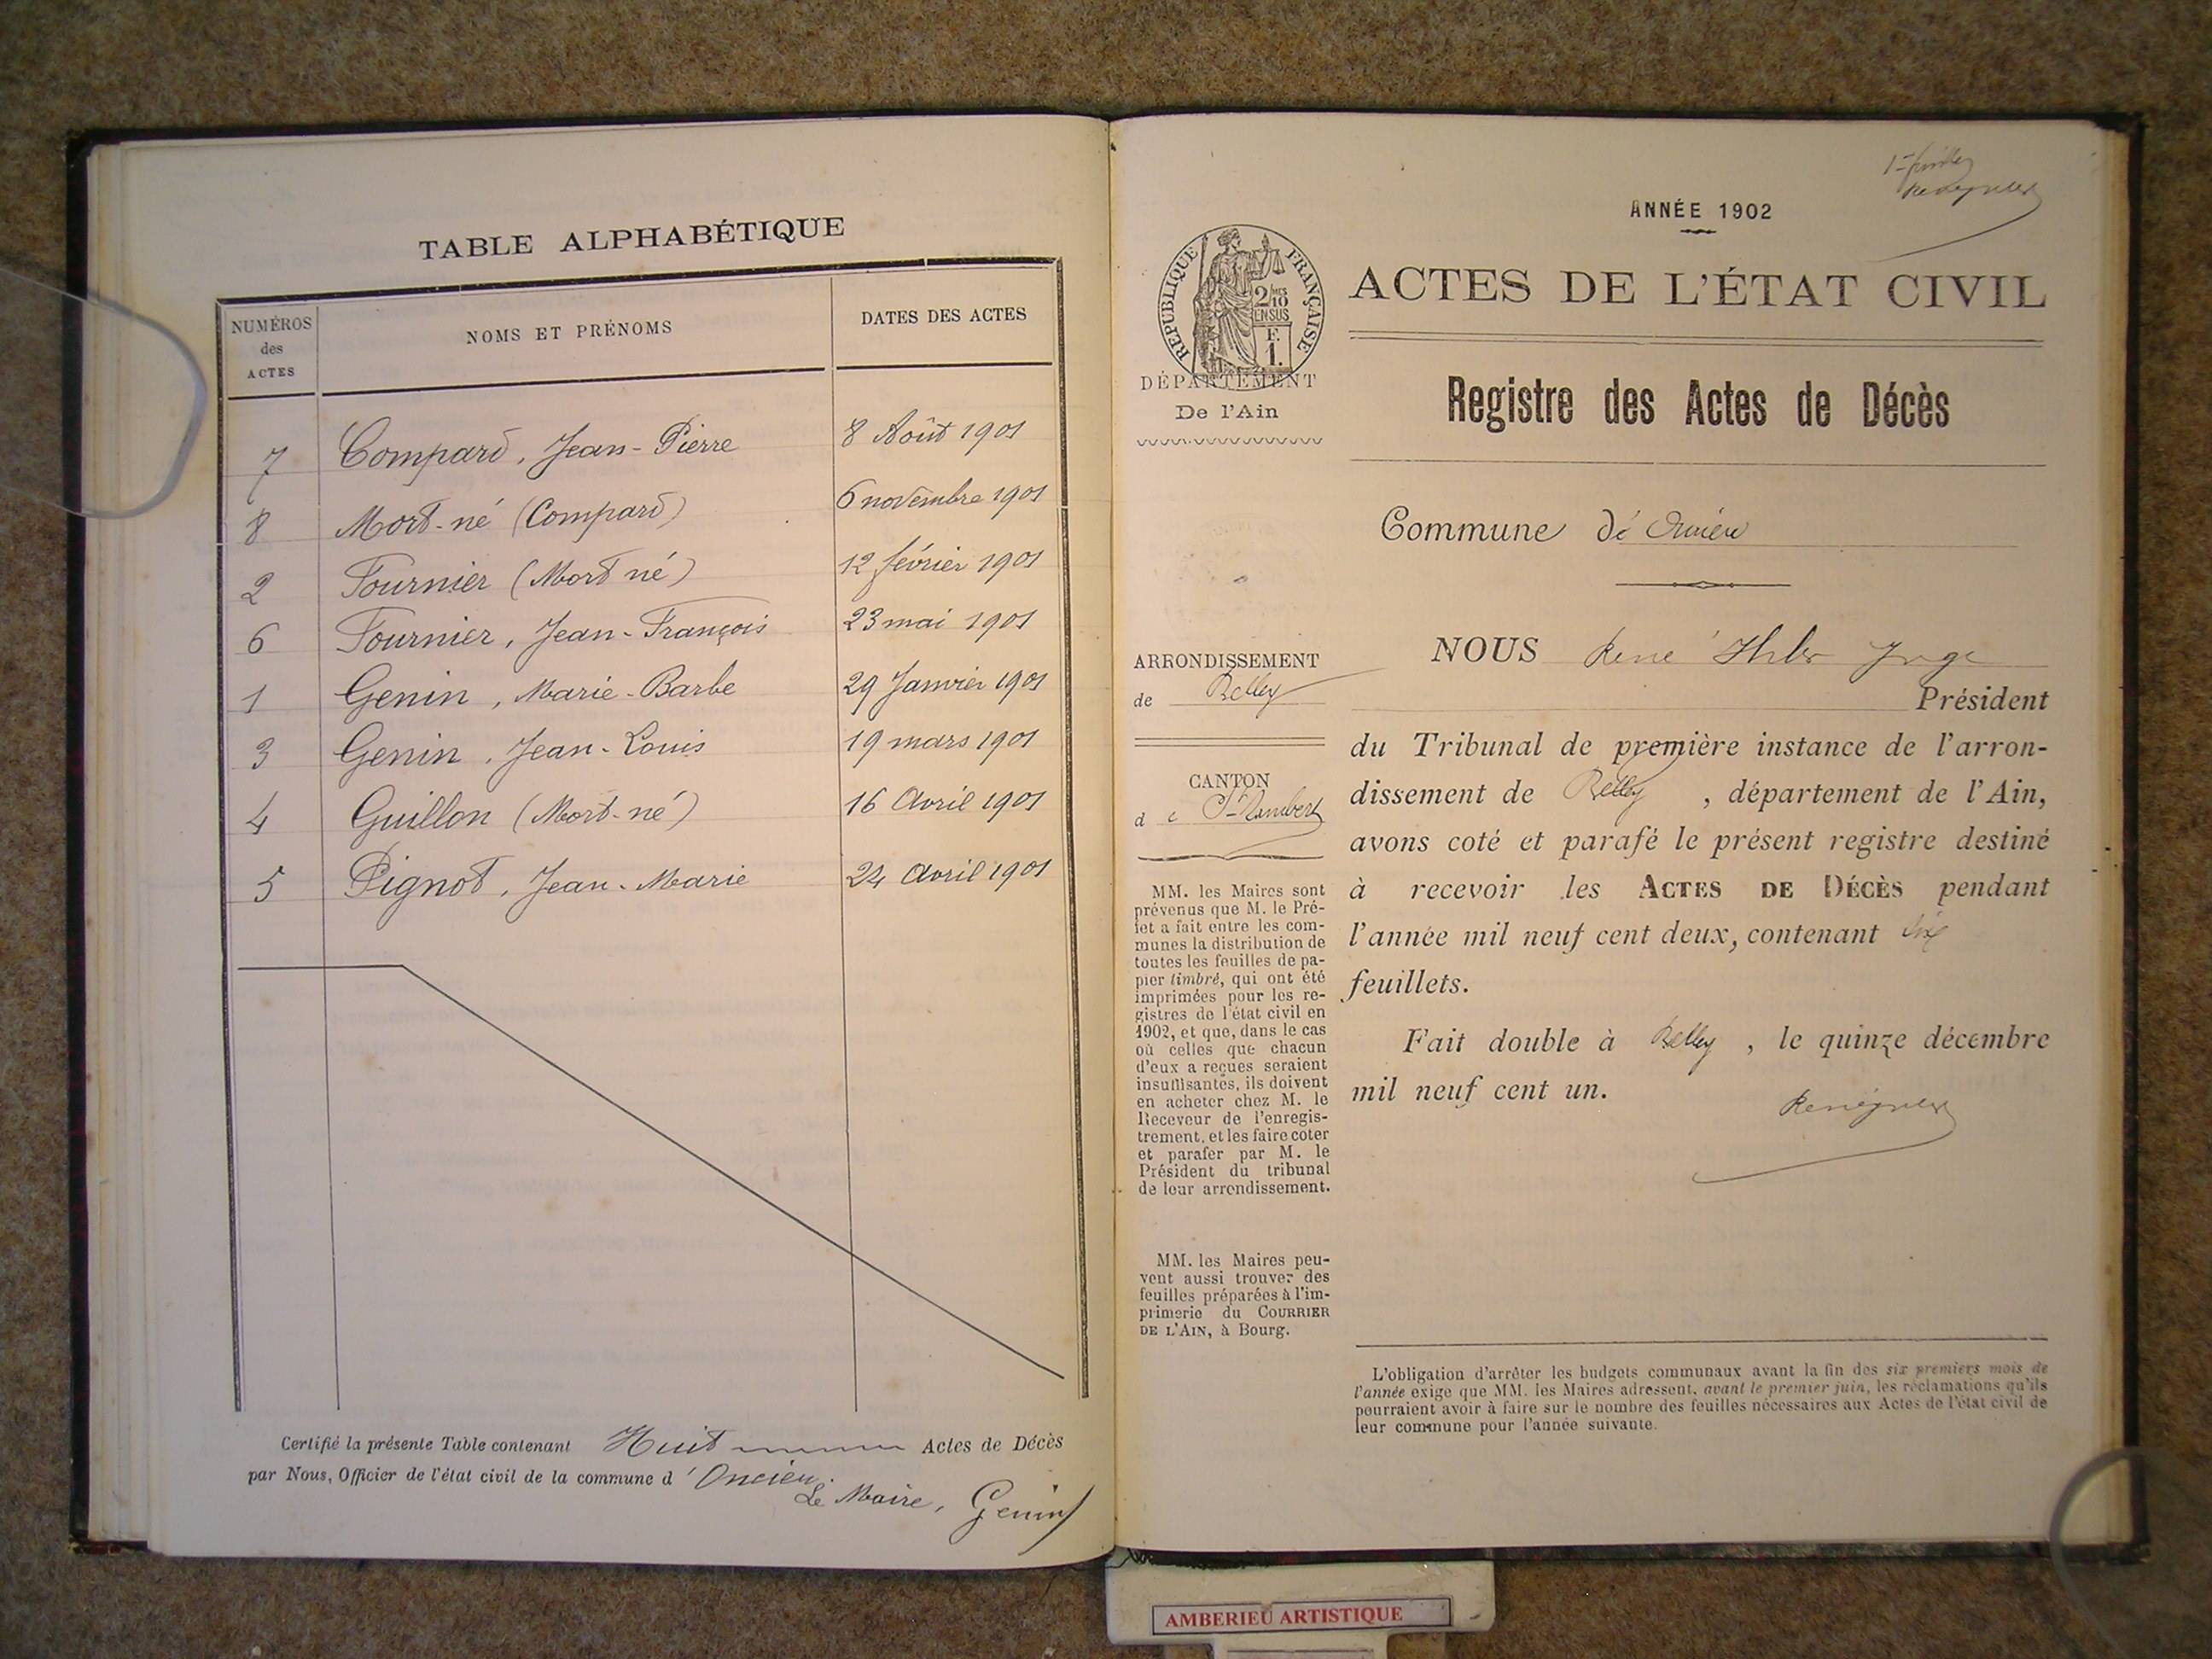 TABLE ALPHABÉTIQUE
NUMÉROS des ACTES
NOMS ET PRÉNOMS
DATES DES ACTES
7 Compard, Jean-Pierre 8 Août 1901
8 Mort-né (Compard) 6 novembre 1901
2 Fournier (Mort né) 12 février 1901
6 Fournier, Jean-François 23 mai 1901
1 Genin, Marie-Barbe 29 Janvier 1901
3 Genin, Jean-Louis 19 mars 1901
4 Guillon (Mort-né) 16 Avril 1901
5 Pignot, Jean-Marie 24 Avril 1901
Certifié la présente Table contenant Huit Actes de Décès
par Nous, Officier de l'état civil de la commune d'Oncieu.
Le Maire, Genin
ANNÉE 1902
RÉPUBLIQUE FRANÇAISE
2/10
EN SUS
F.
1.
DÉPARTEMENT
De l'Ain
ARRONDISSEMENT
de Belley
CANTON
de St-Rambert
MM. les Maires sont
prévenus que M. le Pré-
fet a fait entre les com-
munes la distribution de
toutes les feuilles de pa-
pier timbré, qui ont été
imprimées pour les re-
gistres de l'état civil en
1902, et que, dans le cas
où celles que chacun
d'eux a reçues seraient
insuffisantes, ils doivent
en acheter chez M. le
Receveur de l'enregis-
trement, et les faire coter
et parafer par M. le
Président du tribunal
de leur arrondissement.
MM. les Maires peu-
vent aussi trouver des
feuilles préparées à l'im-
primerie du COURRIER
DE L'AIN, à Bourg.
ACTES DE L'ÉTAT CIVIL
Registre des Actes de Décès
Commune d'Oncieu
NOUS René Juge
Président
du Tribunal de première instance de l'arron-
dissement de Belley, département de l'Ain,
avons coté et parafé le présent registre destiné
à recevoir les ACTES DE DÉCÈS pendant
l'année mil neuf cent deux, contenant six
feuillets.
Fait double à Belley, le quinze décembre
mil neuf cent un.
L'obligation d'arrêter les budgets communaux avant la fin des six premiers mois de
l'année exige que MM. les Maires adressent, avant le premier juin, les réclamations qu'ils
pourraient avoir à faire sur le nombre des feuilles nécessaires aux Actes de l'état civil de
leur commune pour l'année suivante.
AMBERIEU ARTISTIQUE